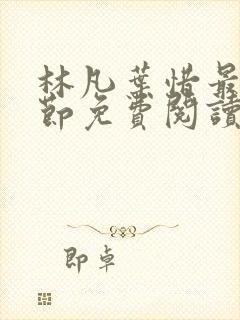 林凡葉惜最
節免費閱讀
即卓